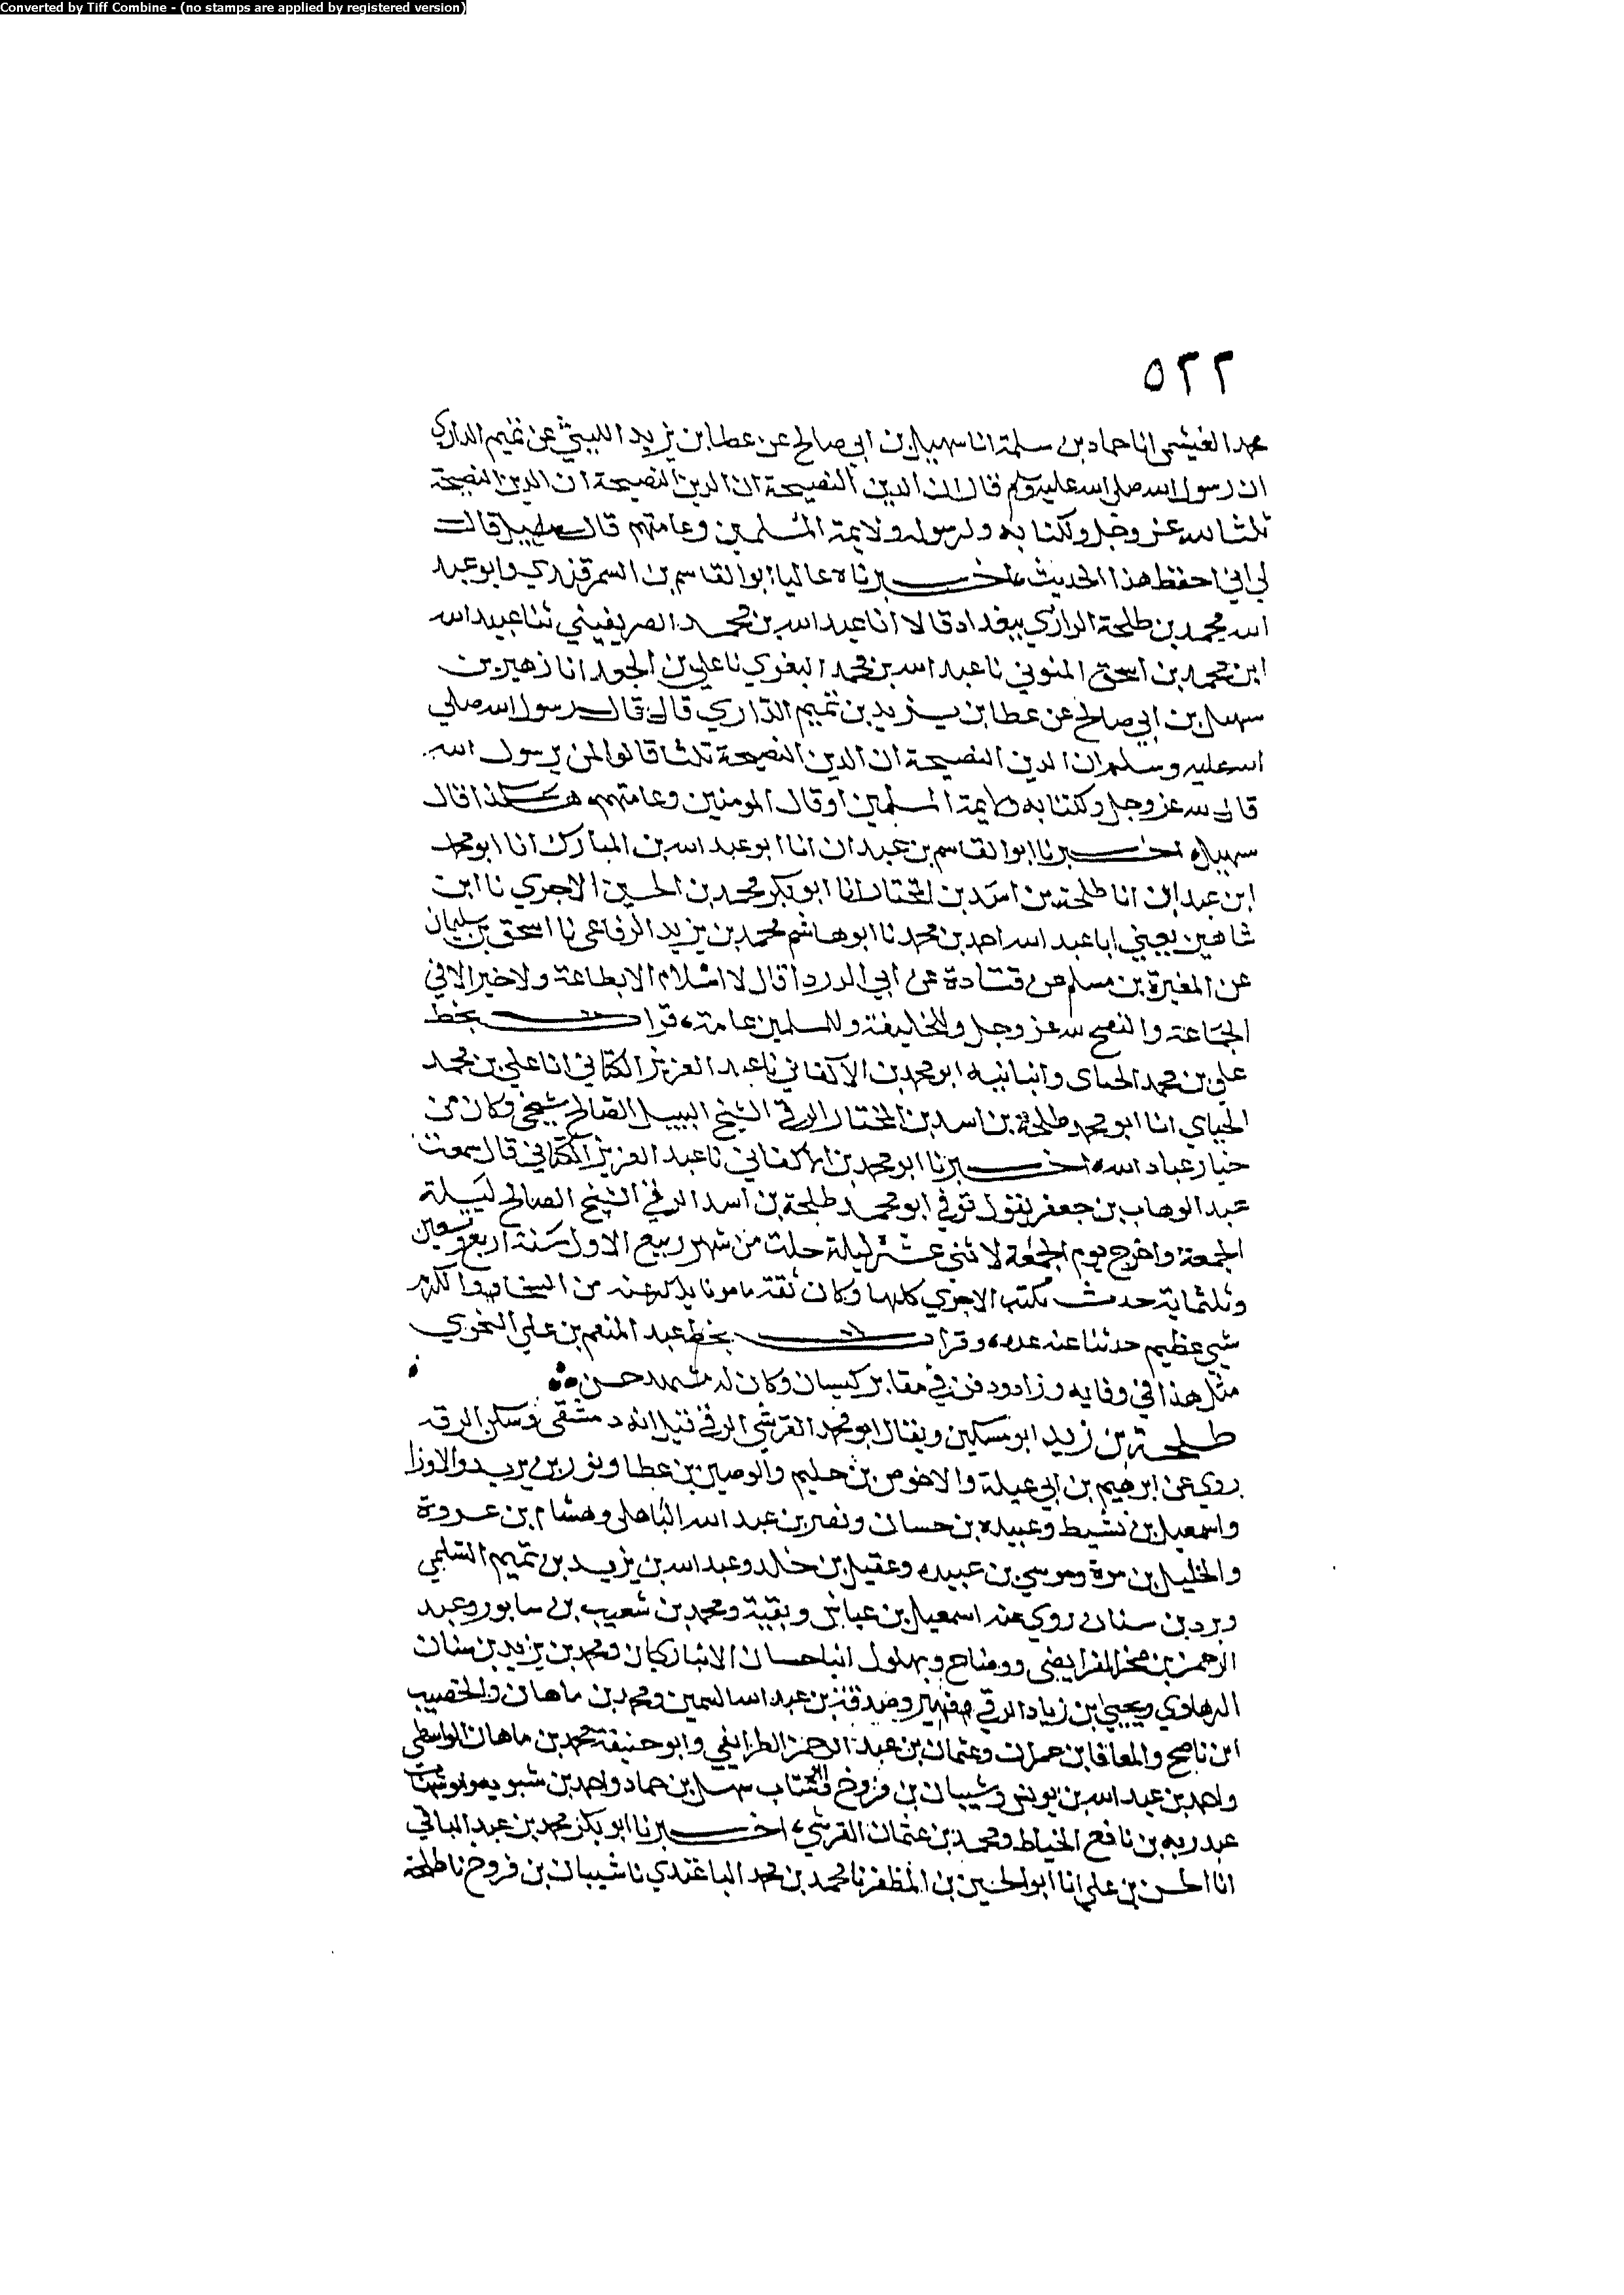 Converted by Tiff Combine - (no stamps are applied by registered version)
٥٢٢
محمد العيشي انا حماد بن سلمة انا سهيل بن ابي صالح عن عطا بن يزيد الليثي عن تميم الداري
ان رسول الله صلى الله عليه وسلم قال ان الدين النصيحة ان الدين النصيحة ان الدين النصيحة
ثلثا لله عز وجل ولكتابه ولرسوله ولايمة المسلمين وعامتهم قال سهيل قال
لي ابي احفظ هذا الحديث اخبرناه عاليا ابو القاسم بن السمرقندي وابو عبد
الله محمد بن طلحة الرازي ببغداد قالا انا عبد الله بن محمد الصريفيني ثنا عبيد الله
ابن محمد بن اسحق المتوثي نا عبد الله بن محمد البغوي نا علي بن الجعد انا زهير بن
سهيل بن ابي صالح عن عطا بن يزيد بن تميم الداري قال قال رسول الله صلى
الله عليه وسلم ان الدين النصيحة ان الدين النصيحة ثلثا قالوا لمن يرسول الله
قال لله عز وجل وكتابه ولايمة المسلمين او قال المومنين وعامتهم هكذا قال
سهيل اخبرنا ابو القاسم بن عبدان انا ابو عبد الله بن المبارك انا ابو محمد
ابن عبدان انا طلحة بن اسد بن المختار انا ابو بكر محمد بن الحسين الاجري نا ابن
شاهين يعني ابا عبد الله احمد بن محمد نا ابو هاشم محمد بن يزيد الرفاعي نا اسحق بن سليمان
عن المغيرة بن مسلم عن قتادة عن ابي الدردا قال لا اسلام الا بطاعة ولا خير الا في
الجماعة والنصح لله عز وجل وللخليفة وللمسلمين عامة قرات بخط
علي بن محمد الحناى وانبانيه ابو محمد بن الاكفاني نا عبد العزيز الكتاني انا علي بن محمد
الحناي انا ابو محمد طلحة بن اسد بن المختار الرقي الشيخ النبيل الصالح شيخي وكان من
خيار عباد الله اخبرنا ابو محمد بن الاكفاني نا عبد العزيز الكتاني قال سمعت
عبد الوهاب بن جعفر يقول توفي ابو محمد طلحة بن اسد الرقي الشيخ الصالح ليلة
الجمعة واخرج يوم الجمعة لاثني عشر ليلة خلت من شهر ربيع الاول سنة اربع وتسعين
وثلثماية حدث بكتب الاجري كلها وكان ثقة مامونا يذكر عنه من السخا والكرم
شي عظيم حدثنا عنه عدة وقرات بخط عبد المنعم بن علي النحوي
مثل هذا في وفايه وزاد ودفن في مقابر كيسان وكان له مشهد حسن
طلحة بن زيد ابو مسكين ويقال ابو محمد القرشي الرقي قيل انه دمشقي وسكن الرقة
روي عن ابرهيم بن ابي عبلة والاحوص بن حكيم والوضين بن عطا وثور بن يزيد والاوزا
واسمعيل بن نشيط وعبيدة بن حسان ونصر بن عبد الله الباهلي وهشام بن عروة
والخليل بن مرة وموسي بن عبيدة وعقيل بن خالد وعبد الله بن يزيد بن تميم السلمي
وبرد بن سنان روي عنه اسمعيل بن عياش وبقية ومحمد بن شعيب بن سابور وعبد
الرحمن بن صخر الفرايضي ووضاح وبهلول ابنا حسان الانباريان ومحمد بن يزيد بن سنان
الرهاوي ويحيى بن زياد الرقي وصدقة بن عبد الله السمين ومحمد بن ماهان والخصيب
ابن ناصح والمعافا بن عمران وعثمان بن عبد الرحمن الطرايفي وابو حنيفة محمد بن ماهان الواسطي
واحمد بن عبد الله بن يونس وشيبان بن فروخ سهل بن حماد واحمد بن شبويه
عبد ربه بن نافع الخياط ومحمد بن عثمان القرشي اخبرنا ابو بكر محمد بن عبد الباقي
انا الحسن بن علي انا ابو الحسين بن المظفر نا محمد بن محمد الباغندي نا شيبان بن فروخ نا طلحة